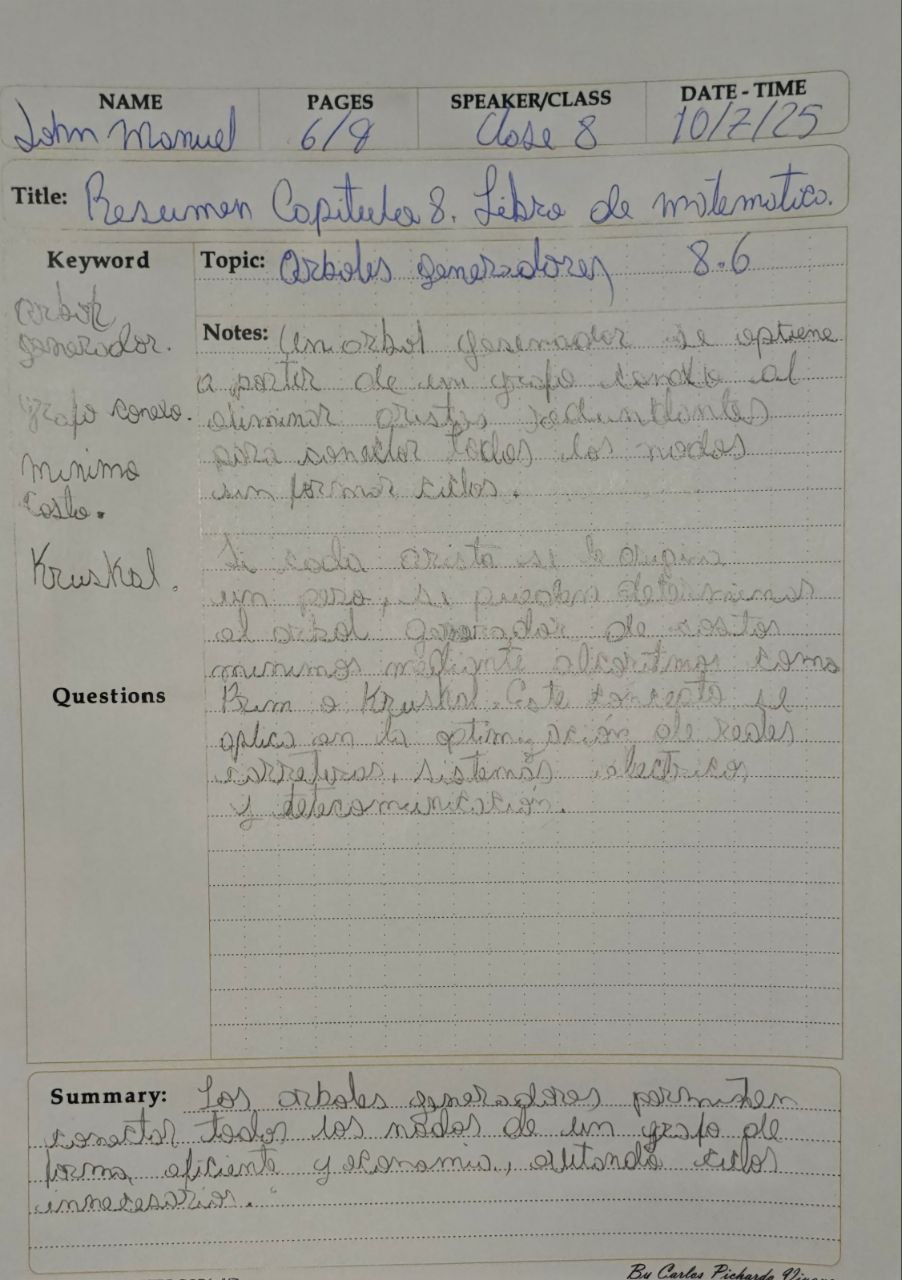 NAME PAGES SPEAKER/CLASS DATE - TIME
John Manuel 6/8 Clase 8 10/7/25
Title: Resumen Capitulo 8. Libro de matematica.
Keyword
Topic: Arboles generadores 8.6
arbol
generador.
grafo conexo.
minimo
Costo.
Kruskal.
Questions
Notes: Un arbol generador se optiene
a partir de un grafo conexo al
eliminar aristas redundantes
para conectar todos los nodos
sin formar ciclos.
Si cada arista se le
un peso, se puede determinar
el arbol generador de costos
minimos mediante algoritmos como
Prim o Kruskal. Este concepto se
aplica en la optimización de redes
carreteras, sistemas electricos
y telecomunicación.
Summary: Los arboles generadores permiten
conectar todos los nodos de un grafo de
forma eficiente y economia, evitando ciclos
innecesarios.
By Carlos Pichardo